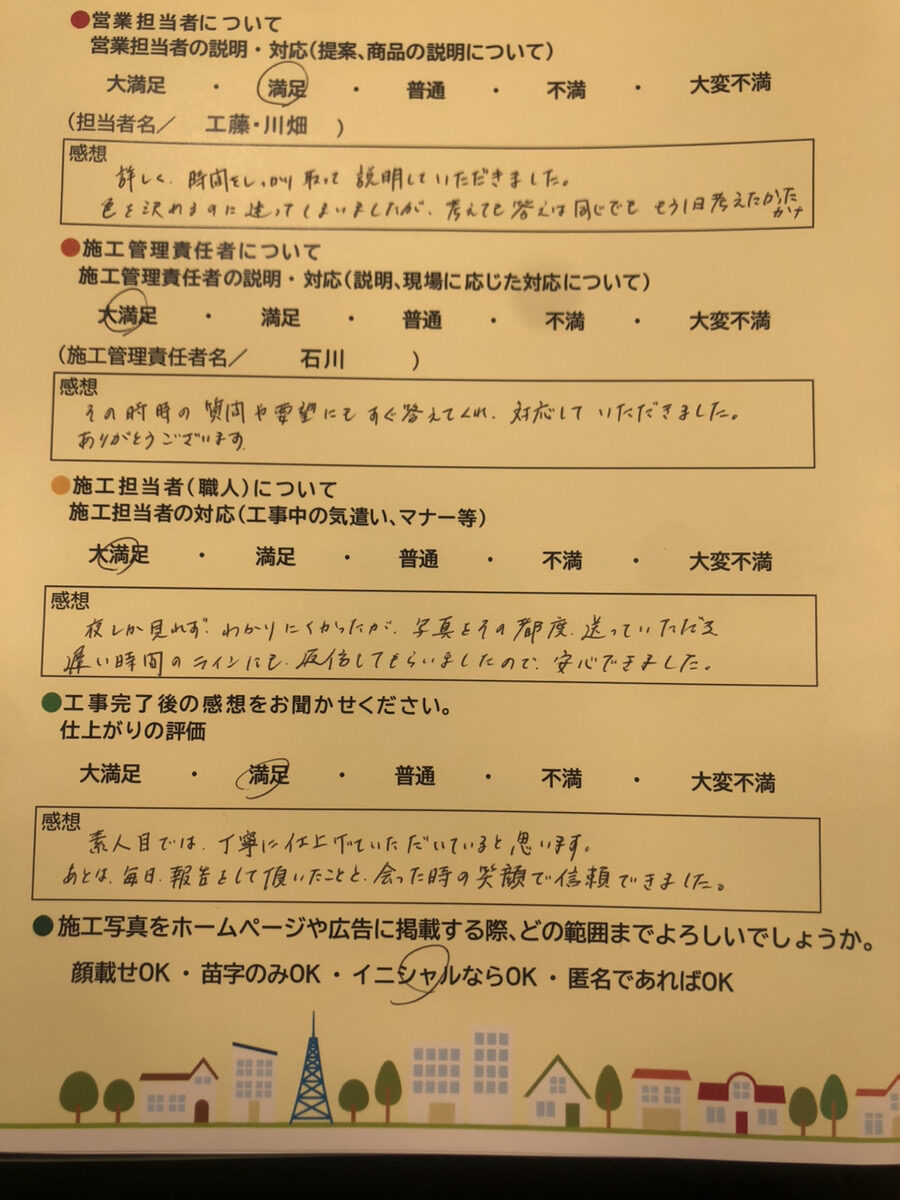 ●営業担当者について
営業担当者の説明・対応(提案、商品の説明について)
大満足 ・ 満足 ・ 普通 ・ 不満 ・ 大変不満
(担当者名／ 工藤・川畑 )
感想
詳しく、時間をしっかり取って説明していただきました。
色を決めるのに迷ってしまいましたが、考えても答えは同じでも もう1日考えたかった
かな
●施工管理責任者について
施工管理責任者の説明・対応(説明、現場に応じた対応について)
大満足 ・ 満足 ・ 普通 ・ 不満 ・ 大変不満
(施工管理責任者名／ 石川 )
感想
その時時の質問や要望にもすぐ答えてくれ、対応していただきました。
ありがとうございます。
●施工担当者(職人)について
施工担当者の対応(工事中の気遣い、マナー等)
大満足 ・ 満足 ・ 普通 ・ 不満 ・ 大変不満
感想
夜しか見れず、わかりにくかったが、写真をその都度、送っていただき
遅い時間のラインにも、返信してもらいましたので、安心できました。
●工事完了後の感想をお聞かせください。
仕上がりの評価
大満足 ・ 満足 ・ 普通 ・ 不満 ・ 大変不満
感想
素人目では、丁寧に仕上げていただいていると思います。
あとは、毎日、報告をして頂いたことと、会った時の笑顔で信頼できました。
●施工写真をホームページや広告に掲載する際、どの範囲までよろしいでしょうか。
顔載せOK・苗字のみOK・イニシャルならOK・匿名であればOK